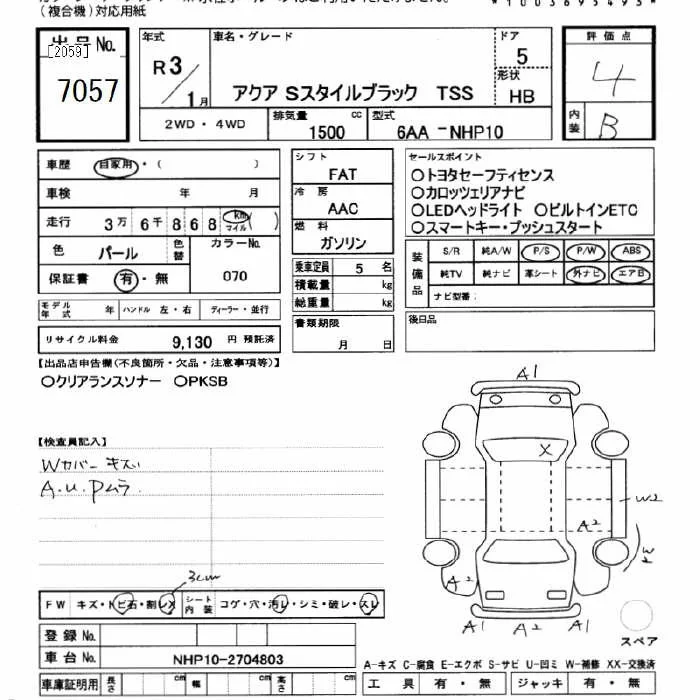 (複合機)対応用紙
*1003695493*
出品No.
[2059]
7057
年式
R3/1月
車名・グレード
アクア Sスタイルブラック TSS
ドア
5
形状
HB
評価点
4
内装
B
2WD・4WD
排気量 1500 cc
型式 6AA-NHP10
車歴 自家用・( )
車検 年 月
走行 3万6千868 km マイル ( )
色 パール 色替 カラーNo. 070
保証書 有・無
モデル年式 年 ハンドル 左・右 ディーラー・並行
リサイクル料金 9,130 円 預託済
シフト
FAT
冷房
AAC
燃料
ガソリン
乗車定員 5 名
積載量 kg
総重量 kg
書類期限
月 日
セールスポイント
○トヨタセーフティセンス
○カロッツェリアナビ
○LEDヘッドライト ○ビルトインETC
○スマートキー・プッシュスタート
装備品
S/R 純A/W P/S P/W ABS
純TV 純ナビ 革シート 外ナビ エアB
ナビ型番:
後日品
【出品店申告欄(不良箇所・欠品・注意事項等)】
○クリアランスソナー ○PKSB
【検査員記入】
Wカバーキズ
A.U.Pムラ.
A1
X
W2
A2
A2
A1
A2
A1
スペア
3cm
FW キズ・トビ石・割レX シート内装 コゲ・穴・汚レ・シミ・破レ・スレ
登録No.
車台No. NHP10-2704803
車庫証明用 長さ cm 幅 cm 高さ cm
A-キズ C-腐食 E-エクボ S-サビ U-凹ミ W-補修 XX-交換済
工具 有・無 ジャッキ 有・無